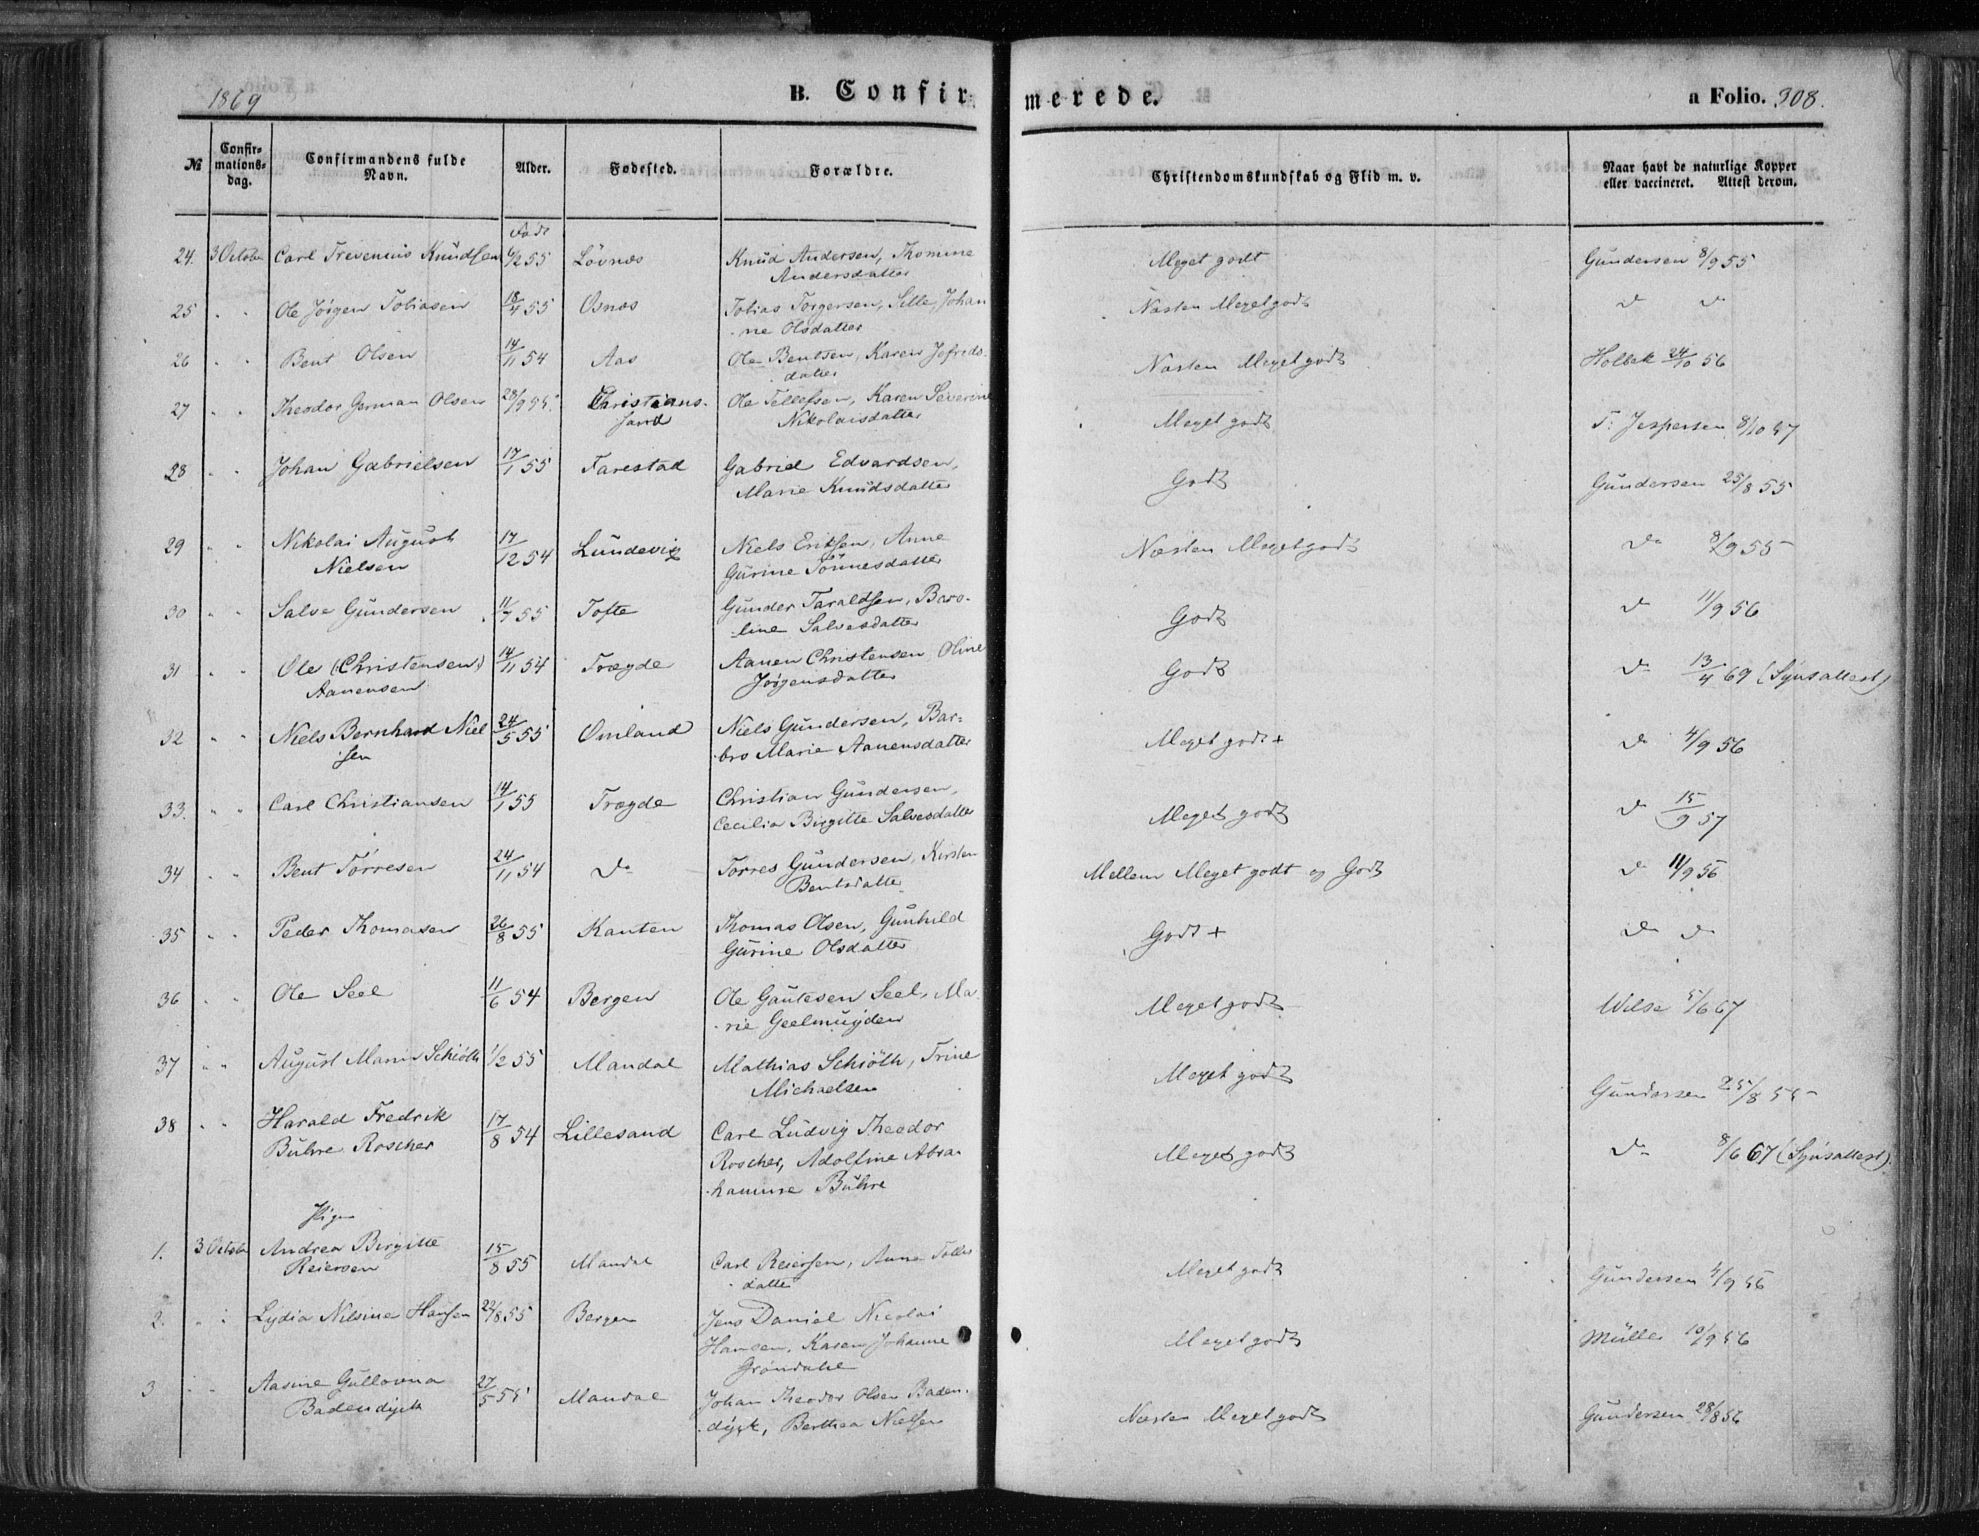 1869
B. Confirmerede.
a Folio. 308.
№ Confirmationsdag. Confirmandens fulde Navn. Alder. Fødested. Forældre. Christendomskundskab og Flid m. v. Naar havt de naturlige Kopper eller vaccineret. Attest derom.
Født
24. 3 October Carl Trevenius Knudsen 6/2 55 Lövnæs Knud Andersen, Thomine Meget godt Gundersen 8/9 55
Andersdatter
25 " " Ole Jörgen Tobiasen 18/4 55 Osnæs Tobias Torgersen, Sille Johan Næsten Meget godt do do
ne Olsdatter
26 " " Bent Olsen 14/11 54 Aas Ole Bentsen, Karen Jefreds- Næsten Meget godt Holbek 24/10 56
datter
27 " " Theodor German Olsen 28/9 55. Christians- Ole Tellefsen, Karen Severine Meget godt T. Jespersen 8/10 57
sand Nikolaisdatter
28 " " Johan Gabrielsen 17/1 55 Farestad Gabriel Edvardsen, Godt Gundersen 25/8 55
Marie Knudsdatter
29 " " Nikolai August 17/12 54 Lundevig Niels Eriksen, Anne Næsten Meget godt do 8/9 55
Nielsen Gurine Tönnesdatter
30 " " Salve Gundersen 11/7 55 Tofte Gunder Taraldsen, Baro- Godt do 11/9 56
line Salvesdatter
31 " " Ole (Christensen) 14/11 54 Trægde Aanen Christensen Oline Godt do 13/4 69 (Synsattest)
Aanensen Jörgensdatter
32 " " Niels Bernhard Niel 24/5 55 Omland Niels Gundersen, Bar- Meget godt + do 4/9 56
sen bro Marie Aanensdatter
33. " " Carl Christiansen 14/1 55 Trægde Christian Gundersen, Meget godt do 15/9 57
Cecilia Birgitte Salvesdatter
34 " " Bent Törresen 24/11 54 do Torres Gundersen, Kirsten Mellem Meget godt og Godt do 11/9 56
Bentsdatter
35 " " Peder Thomasen 26/8 55 Kanten Thomas Olsen, Gunhild Godt + do do
Gurine Olsdatter
36 " " Ole Seel 11/6 54 Bergen Ole Gautesen Seel, Ma- Meget godt Wilse 5/6 67
rie Geelmuyden
37 " " August Marin Schiöth 1/2 55 Mandal Mathias Schiöth, Trine Meget godt Gundersen 25/8 55
Michaelsen
38 " " Harald Fredrik 17/8 54 Lillesand Carl Ludvig Theodor Meget godt do 8/6 67 (Synsattest).
Buhre Roscher Roscher, Adolfine Abra-
hamine Buhre
Piger
1. 3 October Andrea Birgitte 15/8 55 Mandal Carl Reiersen, Anne Tolles Meget godt Gundersen 4/9 56
Reiersen datter
2. " " Lydia Nilsine Hansen 22/8 55 Bergen Jens Daniel Nicolai Meget godt Müller 10/9 56
Hansen, Karen Johanne
Gröndahl
3 " " Aasine Gullovna 27/5 55 Mandal Johan Theodor Olsen Baden- Næsten Meget godt Gundersen 28/8 56
Badendyck dyck, Berthea Nielsen